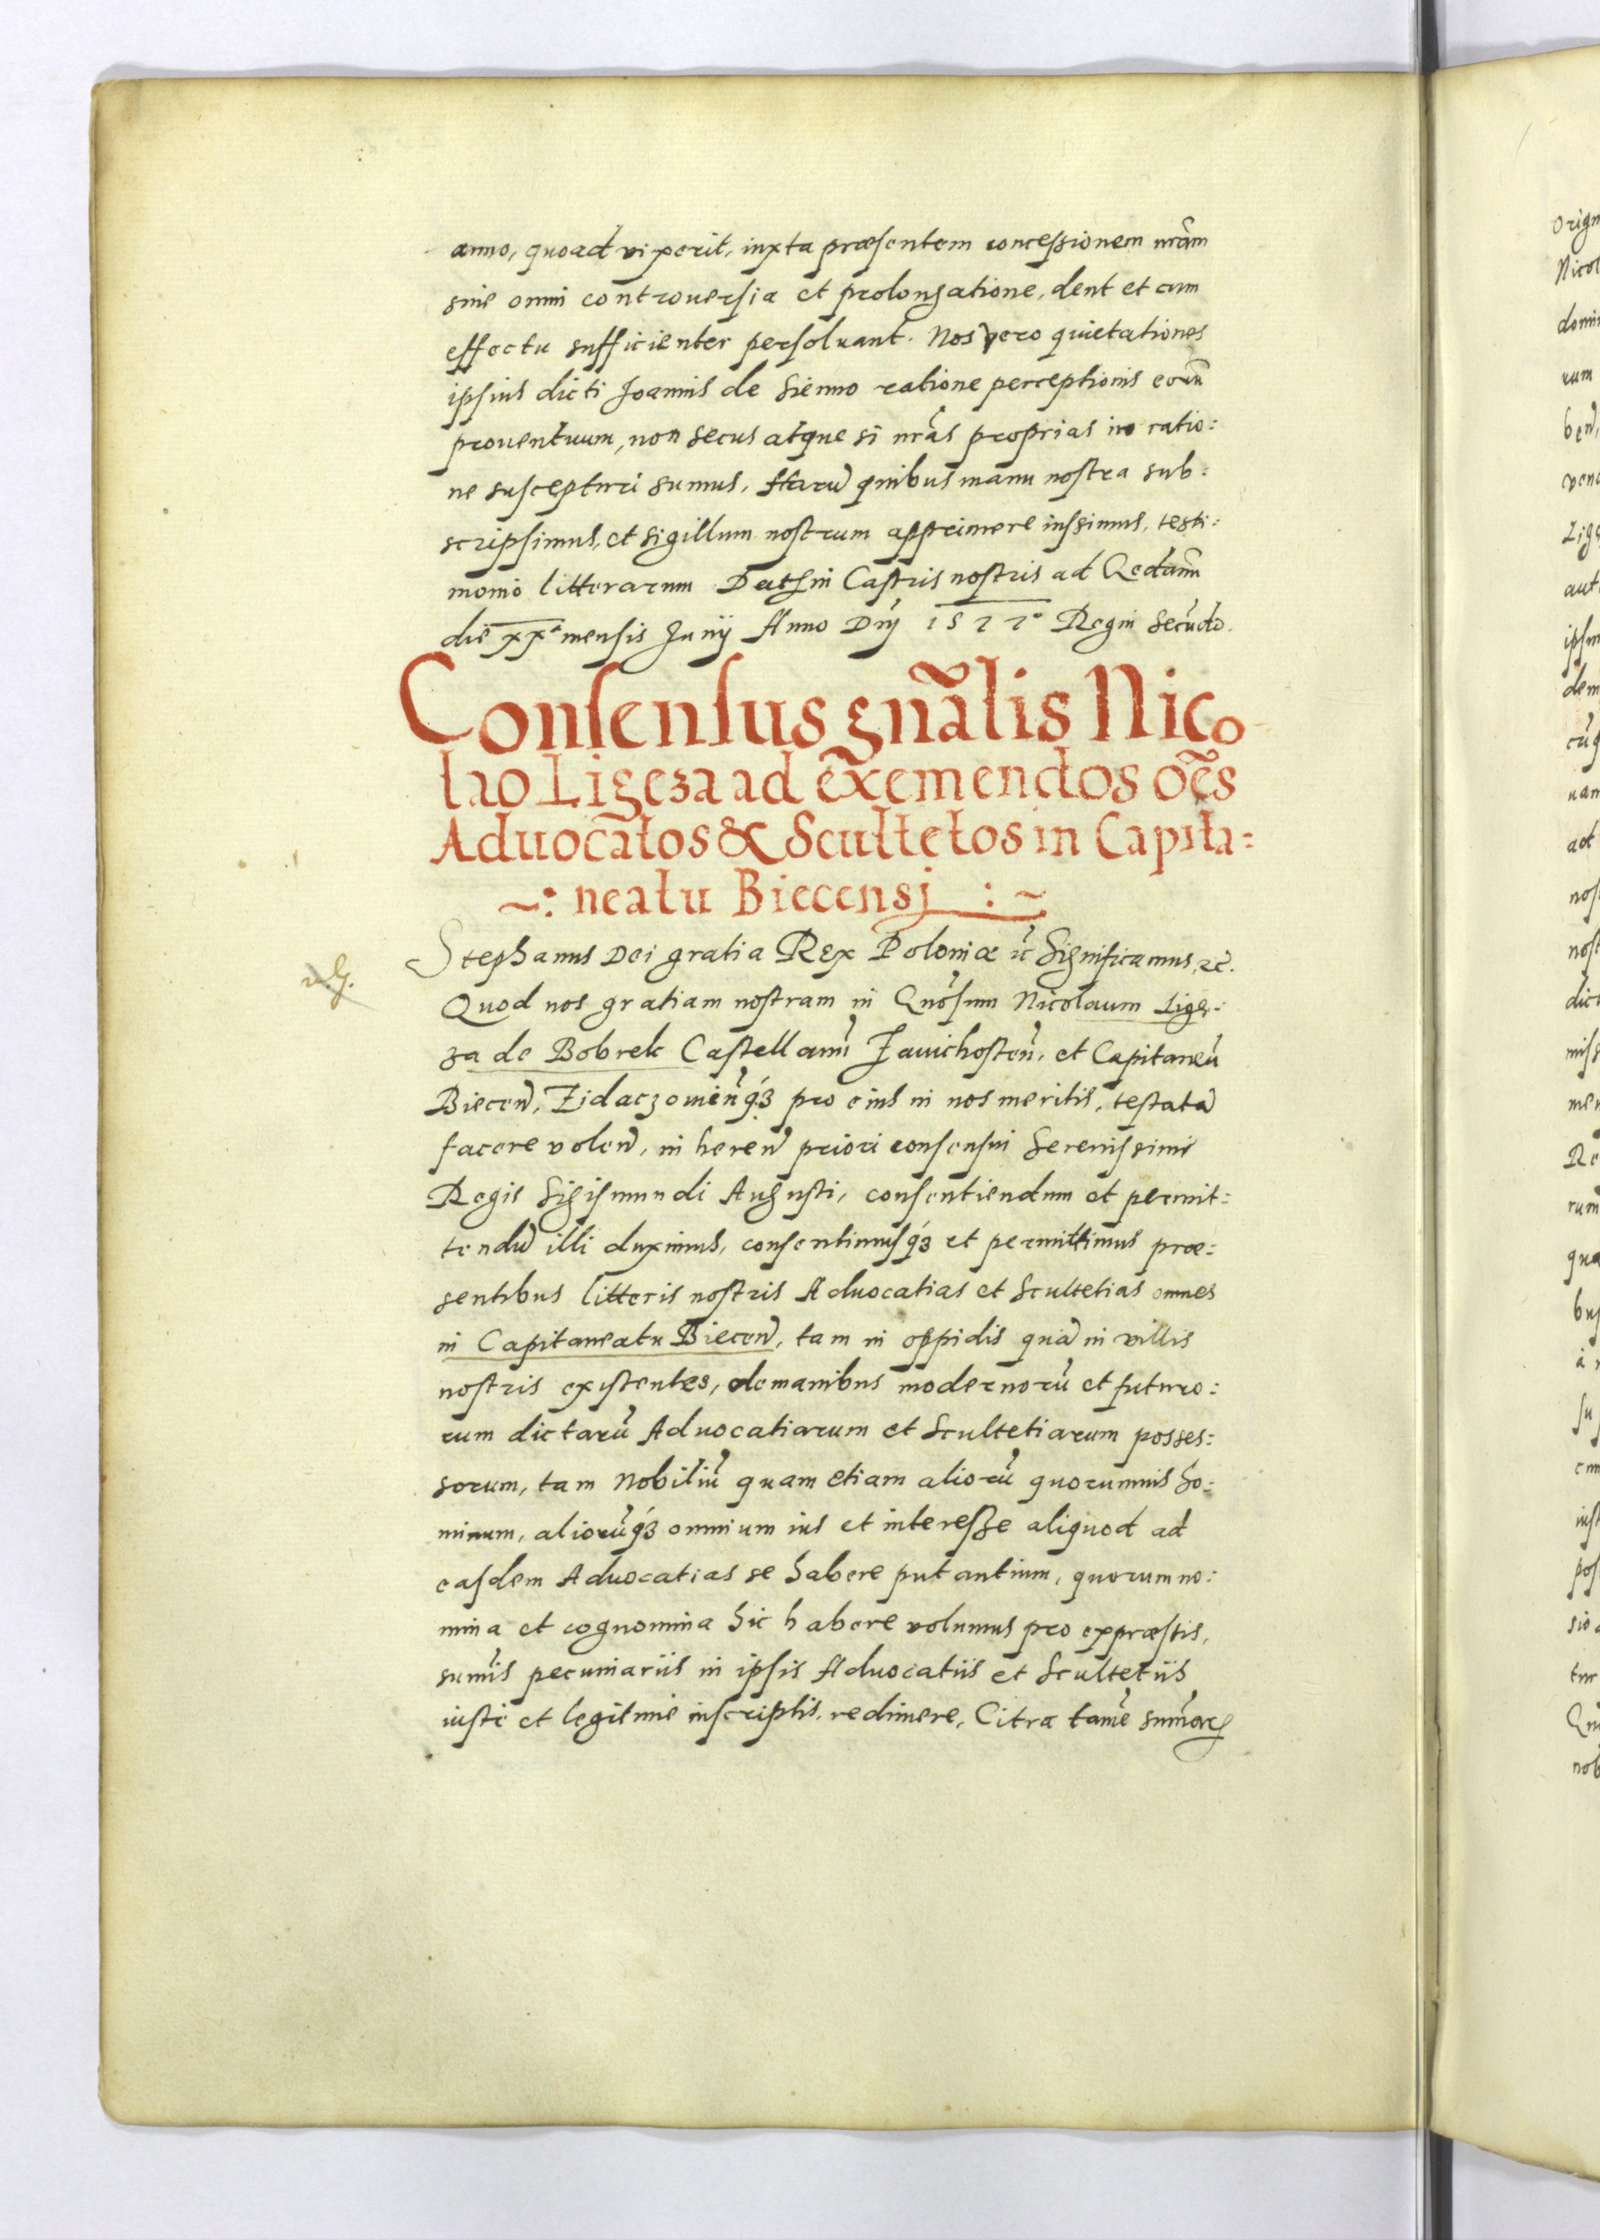 anno, quoad vixerit, iuxta præsentem concessionem nrãm
sine omni controuersia et prolongatione, dent et cum
effectu sufficienter persoluant. Nos vero quietationes
ipsius dicti Joannis de Sienno ratione perceptionis eorũ
prouentuum, non secus atque si nrãs proprias in ratio:
ne suscepturi sumus, Harũ quibus manu nostra sub:
scripsimus, et sigillum nostrum apprimere iussimus, testi:
monio litterarum Dat in Castris nostris ad Gedanũ
die xxª mensis Junij Anno Dnj 1577º Regni Secũdo.
Consensus gnãlis Nico
lao Ligeza ad exemendos oẽs
Aduocatos & Scultetos in Capita:
~: neatu Biecensj :~
Stephanus Dei gratia Rex Poloniæ ẽ Significamus, ẽ.
Quod nos gratiam nostram in Gnõsum Nicolaum Lige:
za de Bobrek Castellanũ Zauichosteñ, et Capitaneũ
Bieceñ, Zidaczouieñq3 pro eius in nos meritis, testatã
facere voleñ, in hereñ priori consensui Serenissimi
Regis Sigismundi Augusti, consentiendum et permit:
tendũ illi duximus, consentimusq3 et permittimus præ:
sentibus litteris nostris Aduocatias et Scultetias omnes
in Capitaneatu Bieceñ, tam in oppidis quã in villis
nostris existentes, de manibus modernorũ et futuro:
rum dictarũ Aduocatiarum et Scultetiarum posses:
sorum, tam Nobiliũ quam etiam aliorũ quorumuis ho:
minum, aliorũq3 omnium ius et interesse aliquod ad
easdem Aduocatias se habere putantium, quorum no:
mina et cognomina hic habere volumus pro expræssis,
sumĩs pecuniariis in ipsis Aduocatiis et Scultetiis
iuste et legitime inscriptis, redimere, Citra tamẽ summarũ